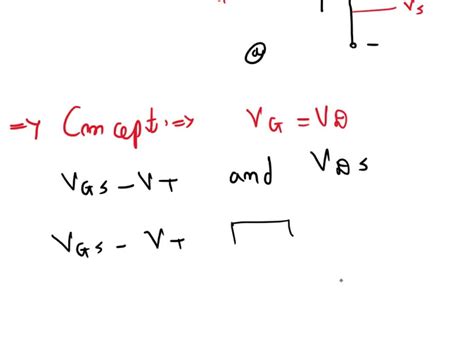 Vs
a
=> Concept:=> VG = VD
VGS - VT and VDS
VGS - VT